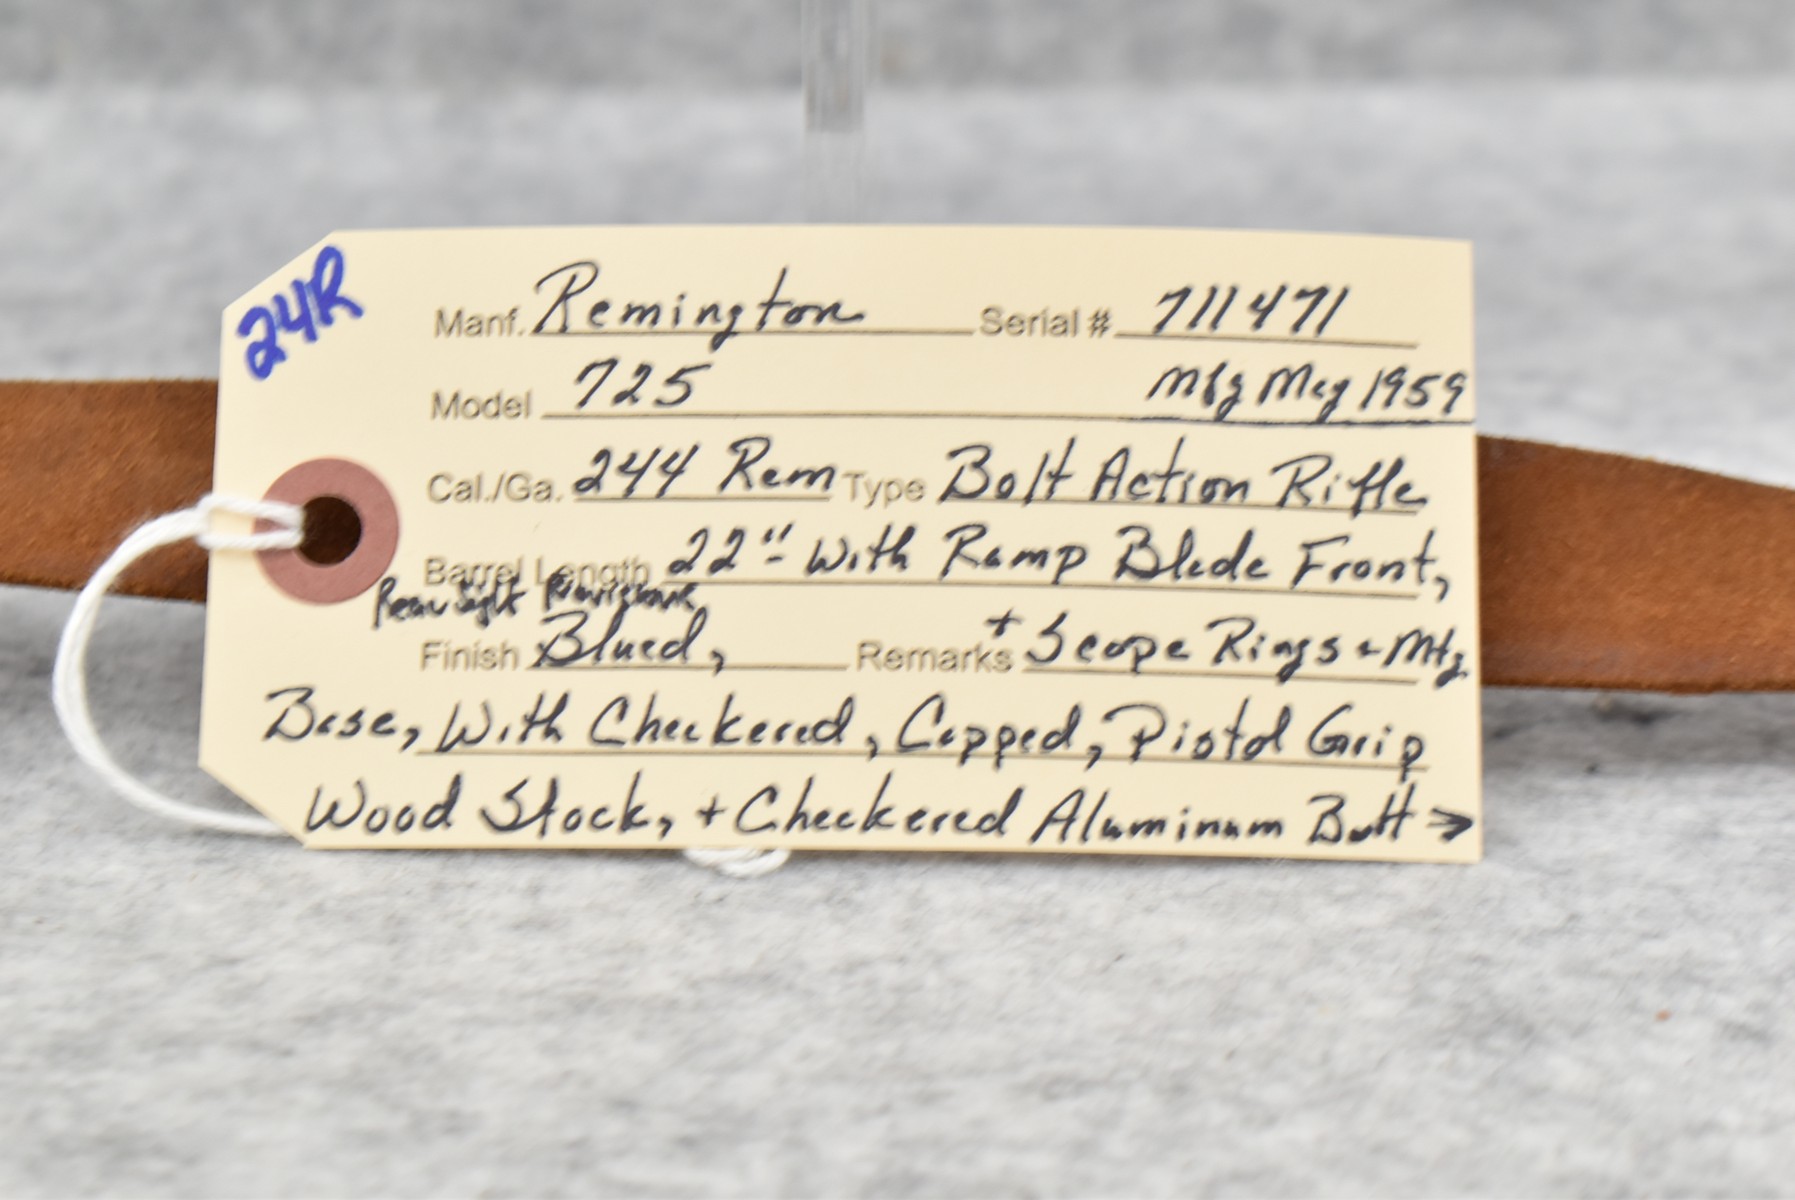 24R
Manf. Remington Serial # 711471
Model 725 Mfg May 1959
Cal./Ga. 244 Rem Type Bolt Action Rifle
Barrel Length 22" With Ramp Blade Front,
Rear Sight Provisions
Finish Blued, Remarks + Scope Rings + Mtg
Base, With Checkered, Capped, Pistol Grip
Wood Stock, + Checkered Aluminum Butt →